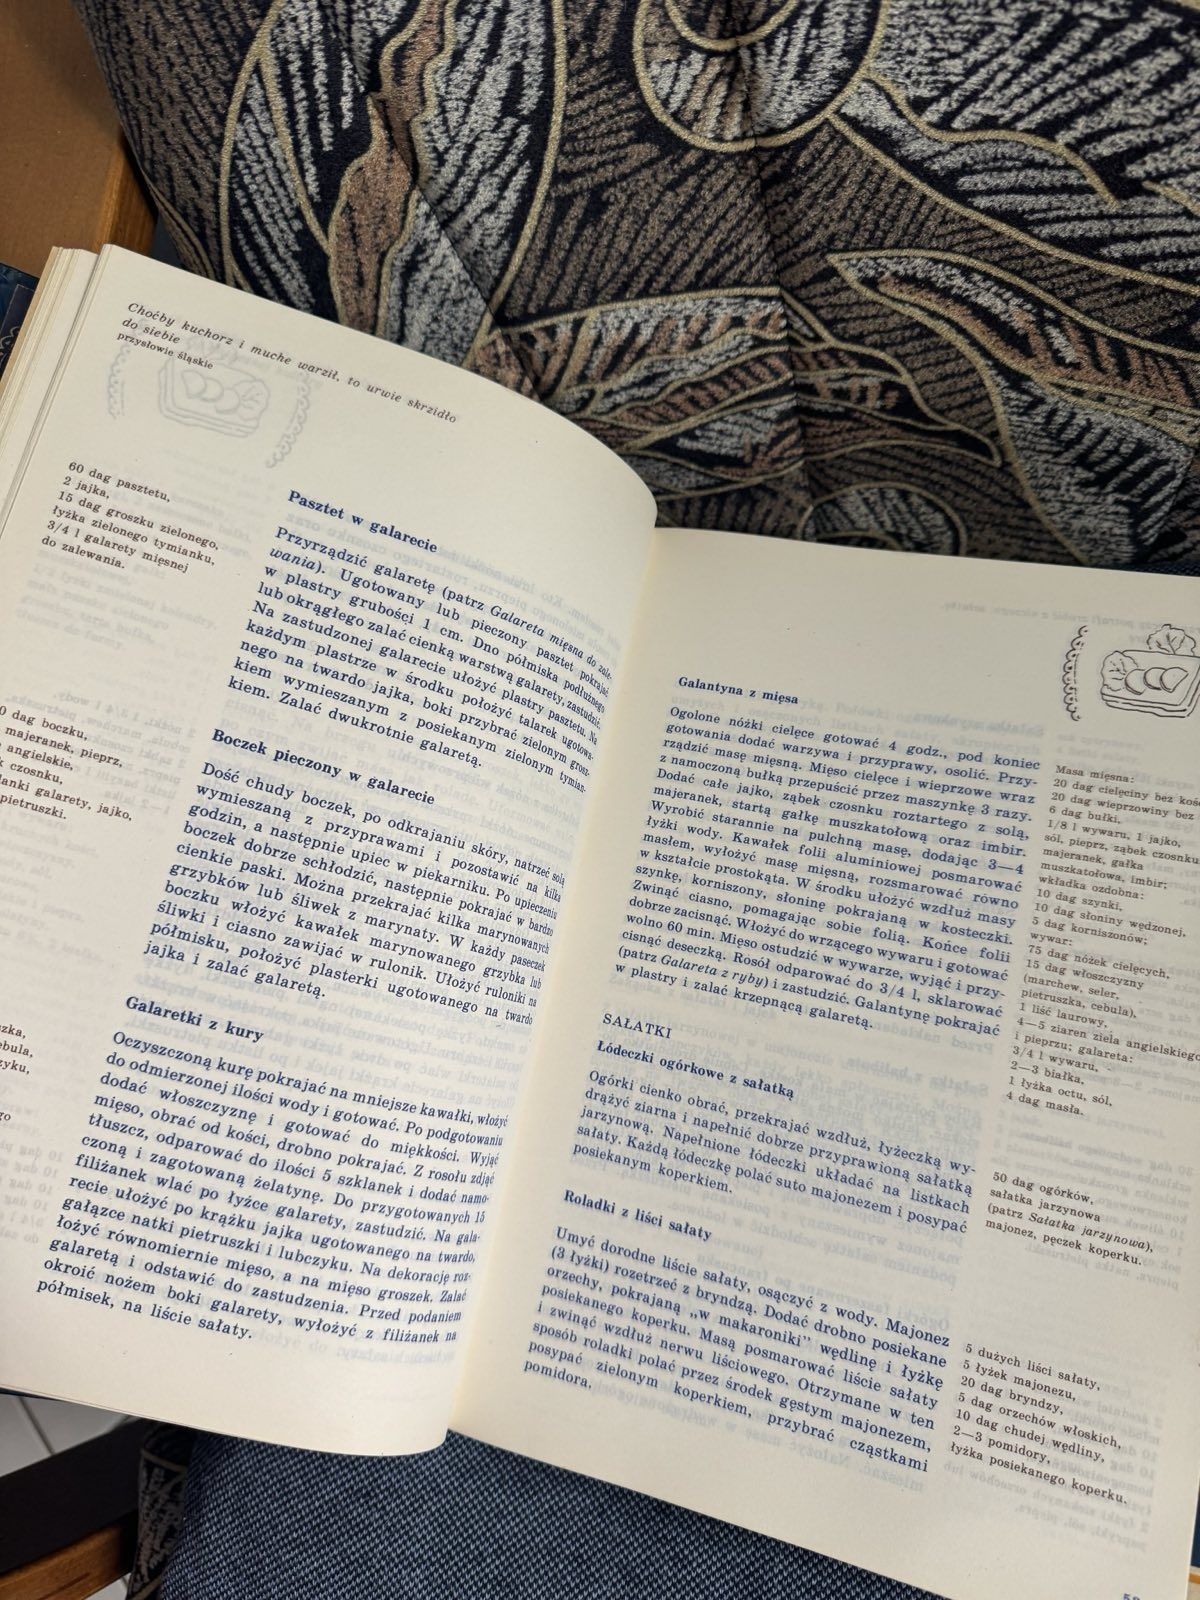 Choćby kuchorz i muche warził, to urwie skrzidło
do siebie
przysłowie śląskie
60 dag pasztetu,
2 jajka,
15 dag groszku zielonego,
łyżka zielonego tymianku,
3/4 l galarety mięsnej
do zalewania.
Pasztet w galarecie
Przyrządzić galaretę (patrz Galareta mięsna do zale-
wania). Ugotowany lub pieczony pasztet pokrajać
w plastry grubości 1 cm. Dno półmiska podłużnego
lub okrągłego zalać cienką warstwą galarety, zastudzić.
Na zastudzonej galarecie ułożyć plastry pasztetu. Na
każdym plastrze w środku położyć talarek ugotowa-
nego na twardo jajka, boki przybrać zielonym grosz-
kiem wymieszanym z posiekanym zielonym tymian-
kiem. Zalać dwukrotnie galaretą.
0 dag boczku,
majeranek, pieprz,
angielskie,
czosnku,
lanki galarety, jajko,
pietruszki.
Boczek pieczony w galarecie
Dość chudy boczek, po odkrajaniu skóry, natrzeć solą
wymieszaną z przyprawami i pozostawić na kilka
godzin, a następnie upiec w piekarniku. Po upieczeniu
boczek dobrze schłodzić, następnie pokrajać w bardzo
cienkie paski. Można przekrajać kilka marynowanych
grzybków lub śliwek z marynaty. W każdy paseczek
boczku włożyć kawałek marynowanego grzybka lub
śliwki i ciasno zawijać w rulonik. Ułożyć ruloniki na
półmisku, położyć plasterki ugotowanego na twardo
jajka i zalać galaretą.
szka,
ebula,
zyku,
go
Galaretki z kury
Oczyszczoną kurę pokrajać na mniejsze kawałki, włożyć
do odmierzonej ilości wody i gotować. Po podgotowaniu
dodać włoszczyznę i gotować do miękkości. Wyjąć
mięso, obrać od kości, drobno pokrajać. Z rosołu zdjąć
tłuszcz, odparować do ilości 5 szklanek i dodać namo-
czoną i zagotowaną żelatynę. Do przygotowanych 15
filiżanek wlać po łyżce galarety, zastudzić. Na gala-
recie ułożyć po krążku jajka ugotowanego na twardo,
gałązce natki pietruszki i lubczyku. Na dekorację roz-
łożyć równomiernie mięso, a na mięso groszek. Zalać
galaretą i odstawić do zastudzenia. Przed podaniem
okroić nożem boki galarety, wyłożyć z filiżanek na
półmisek, na liście sałaty.
Galantyna z mięsa
Ogolone nóżki cielęce gotować 4 godz., pod koniec
gotowania dodać warzywa i przyprawy, osolić. Przy-
rządzić masę mięsną. Mięso cielęce i wieprzowe wraz
z namoczoną bułką przepuścić przez maszynkę 3 razy.
Dodać całe jajko, ząbek czosnku roztartego z solą,
majeranek, startą gałkę muszkatołową oraz imbir.
Wyrobić starannie na pulchną masę, dodając 3—4
łyżki wody. Kawałek folii aluminiowej posmarować
masłem, wyłożyć masę mięsną, rozsmarować równo
w kształcie prostokąta. W środku ułożyć wzdłuż masy
szynkę, korniszony, słoninę pokrajaną w kosteczki.
Zwinąć ciasno, pomagając sobie folią. Końce folii
dobrze zacisnąć. Włożyć do wrzącego wywaru i gotować
wolno 60 min. Mięso ostudzić w wywarze, wyjąć i przy-
cisnąć deseczką. Rosół odparować do 3/4 l, sklarować
(patrz Galareta z ryby) i zastudzić. Galantynę pokrajać
w plastry i zalać krzepnącą galaretą.
Masa mięsna:
20 dag cielęciny bez kości
20 dag wieprzowiny bez
6 dag bułki,
1/8 l wywaru, 1 jajko,
sól, pieprz, ząbek czosnku
majeranek, gałka
muszkatołowa, imbir;
wkładka ozdobna:
10 dag szynki,
10 dag słoniny wędzonej,
5 dag korniszonów;
wywar:
75 dag nóżek cielęcych,
15 dag włoszczyzny
(marchew, seler,
pietruszka, cebula),
1 liść laurowy,
4—5 ziaren ziela angielskiego
i pieprzu; galareta:
3/4 l wywaru,
2—3 białka,
1 łyżka octu, sól,
4 dag masła.
SAŁATKI
Łódeczki ogórkowe z sałatką
Ogórki cienko obrać, przekrajać wzdłuż, łyżeczką wy-
drążyć ziarna i napełnić dobrze przyprawioną sałatką
jarzynową. Napełnione łódeczki układać na listkach
sałaty. Każdą łódeczkę polać suto majonezem i posypać
posiekanym koperkiem.
50 dag ogórków,
sałatka jarzynowa
(patrz Sałatka jarzynowa),
majonez, pęczek koperku.
Roladki z liści sałaty
Umyć dorodne liście sałaty, osączyć z wody. Majonez
(3 łyżki) rozetrzeć z bryndzą. Dodać drobno posiekane
orzechy, pokrajaną „w makaroniki” wędlinę i łyżkę
posiekanego koperku. Masą posmarować liście sałaty
i zwinąć wzdłuż nerwu liściowego. Otrzymane w ten
sposób roladki polać przez środek gęstym majonezem,
posypać zielonym koperkiem, przybrać cząstkami
pomidora,
5 dużych liści sałaty,
5 łyżek majonezu,
20 dag bryndzy,
5 dag orzechów włoskich,
10 dag chudej wędliny,
2—3 pomidory,
łyżka posiekanego koperku.